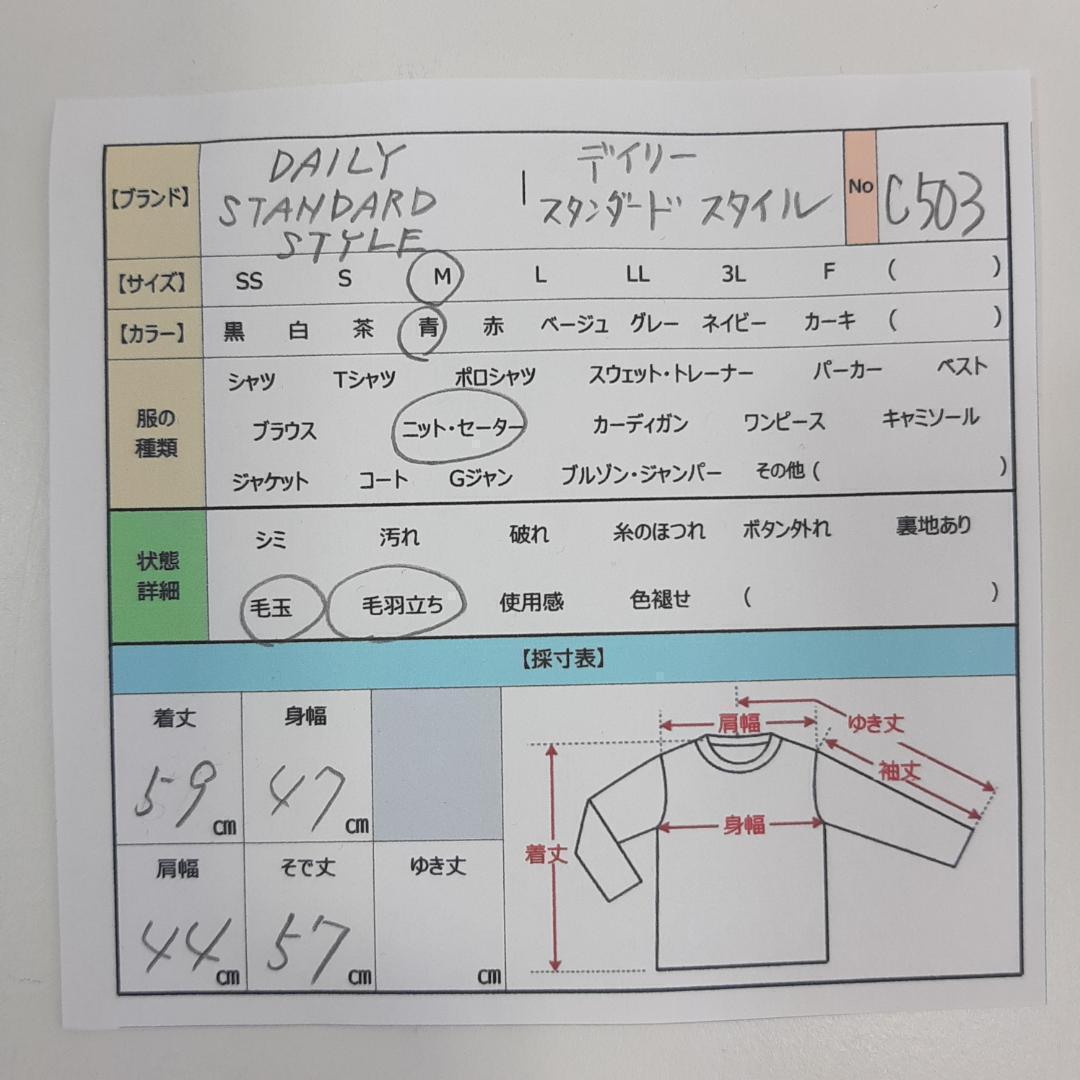 【ブランド】 DAILY STANDARD STYLE | デイリー スタンダード スタイル No C503
【サイズ】 SS S M L LL 3L F ( )
【カラー】 黒 白 茶 青 赤 ベージュ グレー ネイビー カーキ ( )
服の種類
シャツ Tシャツ ポロシャツ スウェット・トレーナー パーカー ベスト
ブラウス ニット・セーター カーディガン ワンピース キャミソール
ジャケット コート Gジャン ブルゾン・ジャンパー その他 ( )
状態詳細
シミ 汚れ 破れ 糸のほつれ ボタン外れ 裏地あり
毛玉 毛羽立ち 使用感 色褪せ ( )
【採寸表】
着丈 身幅
59 cm 47 cm
肩幅 そで丈 ゆき丈
44 cm 57 cm cm
肩幅 ゆき丈
袖丈
身幅
着丈